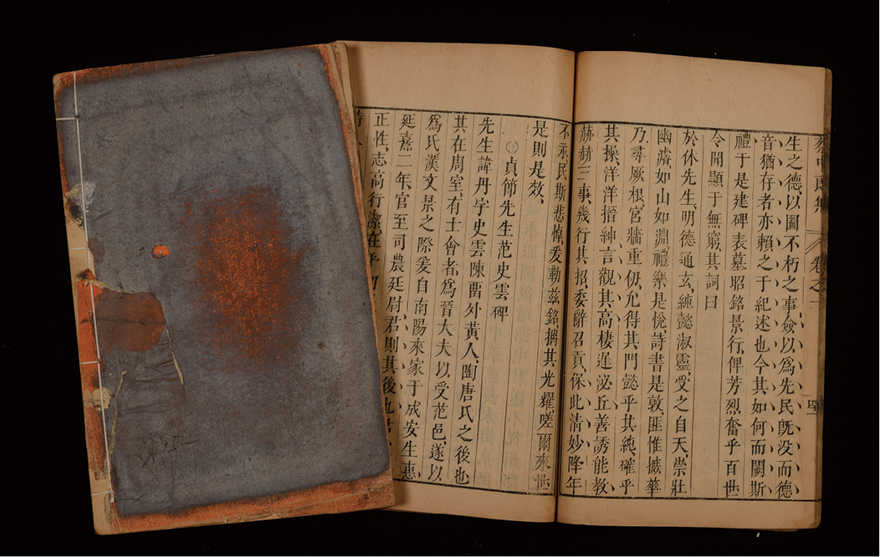 蔡中郎集 卷之
生之德以圖不朽之事僉以爲先民旣没而德
音猶存者亦賴之于紀述也今其如何而闕斯
禮于是建碑表墓昭銘景行俾芳烈奮乎百世
令聞顯于無窮其詞曰
於休先生明德通玄純懿淑靈受之自天崇壯
幽濬如山如淵禮樂是悅詩書是敦匪惟摭華
乃尋厥根宮牆重仞允得其門懿乎其純確乎
其操洋洋搢紳言觀其高棲遲泌丘善誘能教
赫赫三事幾行其招委辭召貢保此清妙降年
不永民斯悲悼爰勒茲銘摛其光耀嗟爾來世
是則是效
貞節先生范史雲碑
先生諱丹字史雲陳畱外黃人陶唐氏之後也
其在周室有士會者爲晉大夫以受范邑遂以
爲氏漢文景之際爰自南陽來家于成安生惠
延熹二年官至司農廷尉君則其後也
正性志高行潔在乎